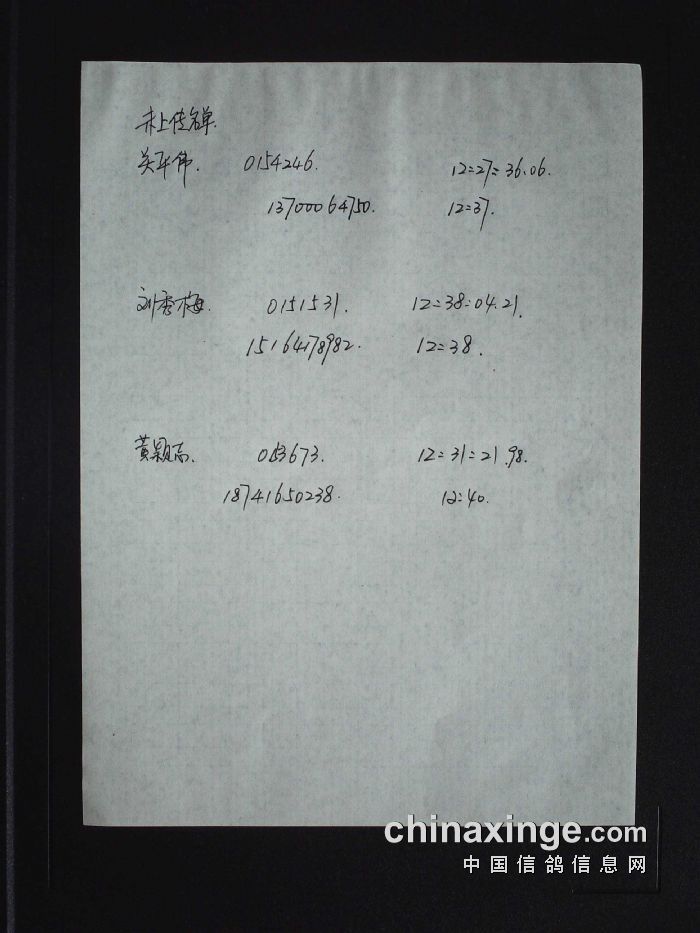 未上传名单.
关平伟. 0154246. 12:27:36.06.
13700064750. 12:37.
刘秀梅. 0151531. 12:38:04.21.
15164178982. 12:38.
黄颖高. 0153673. 12:31:21.98.
18741650238. 12:40.
chinaxinge.com
中国信鸽信息网